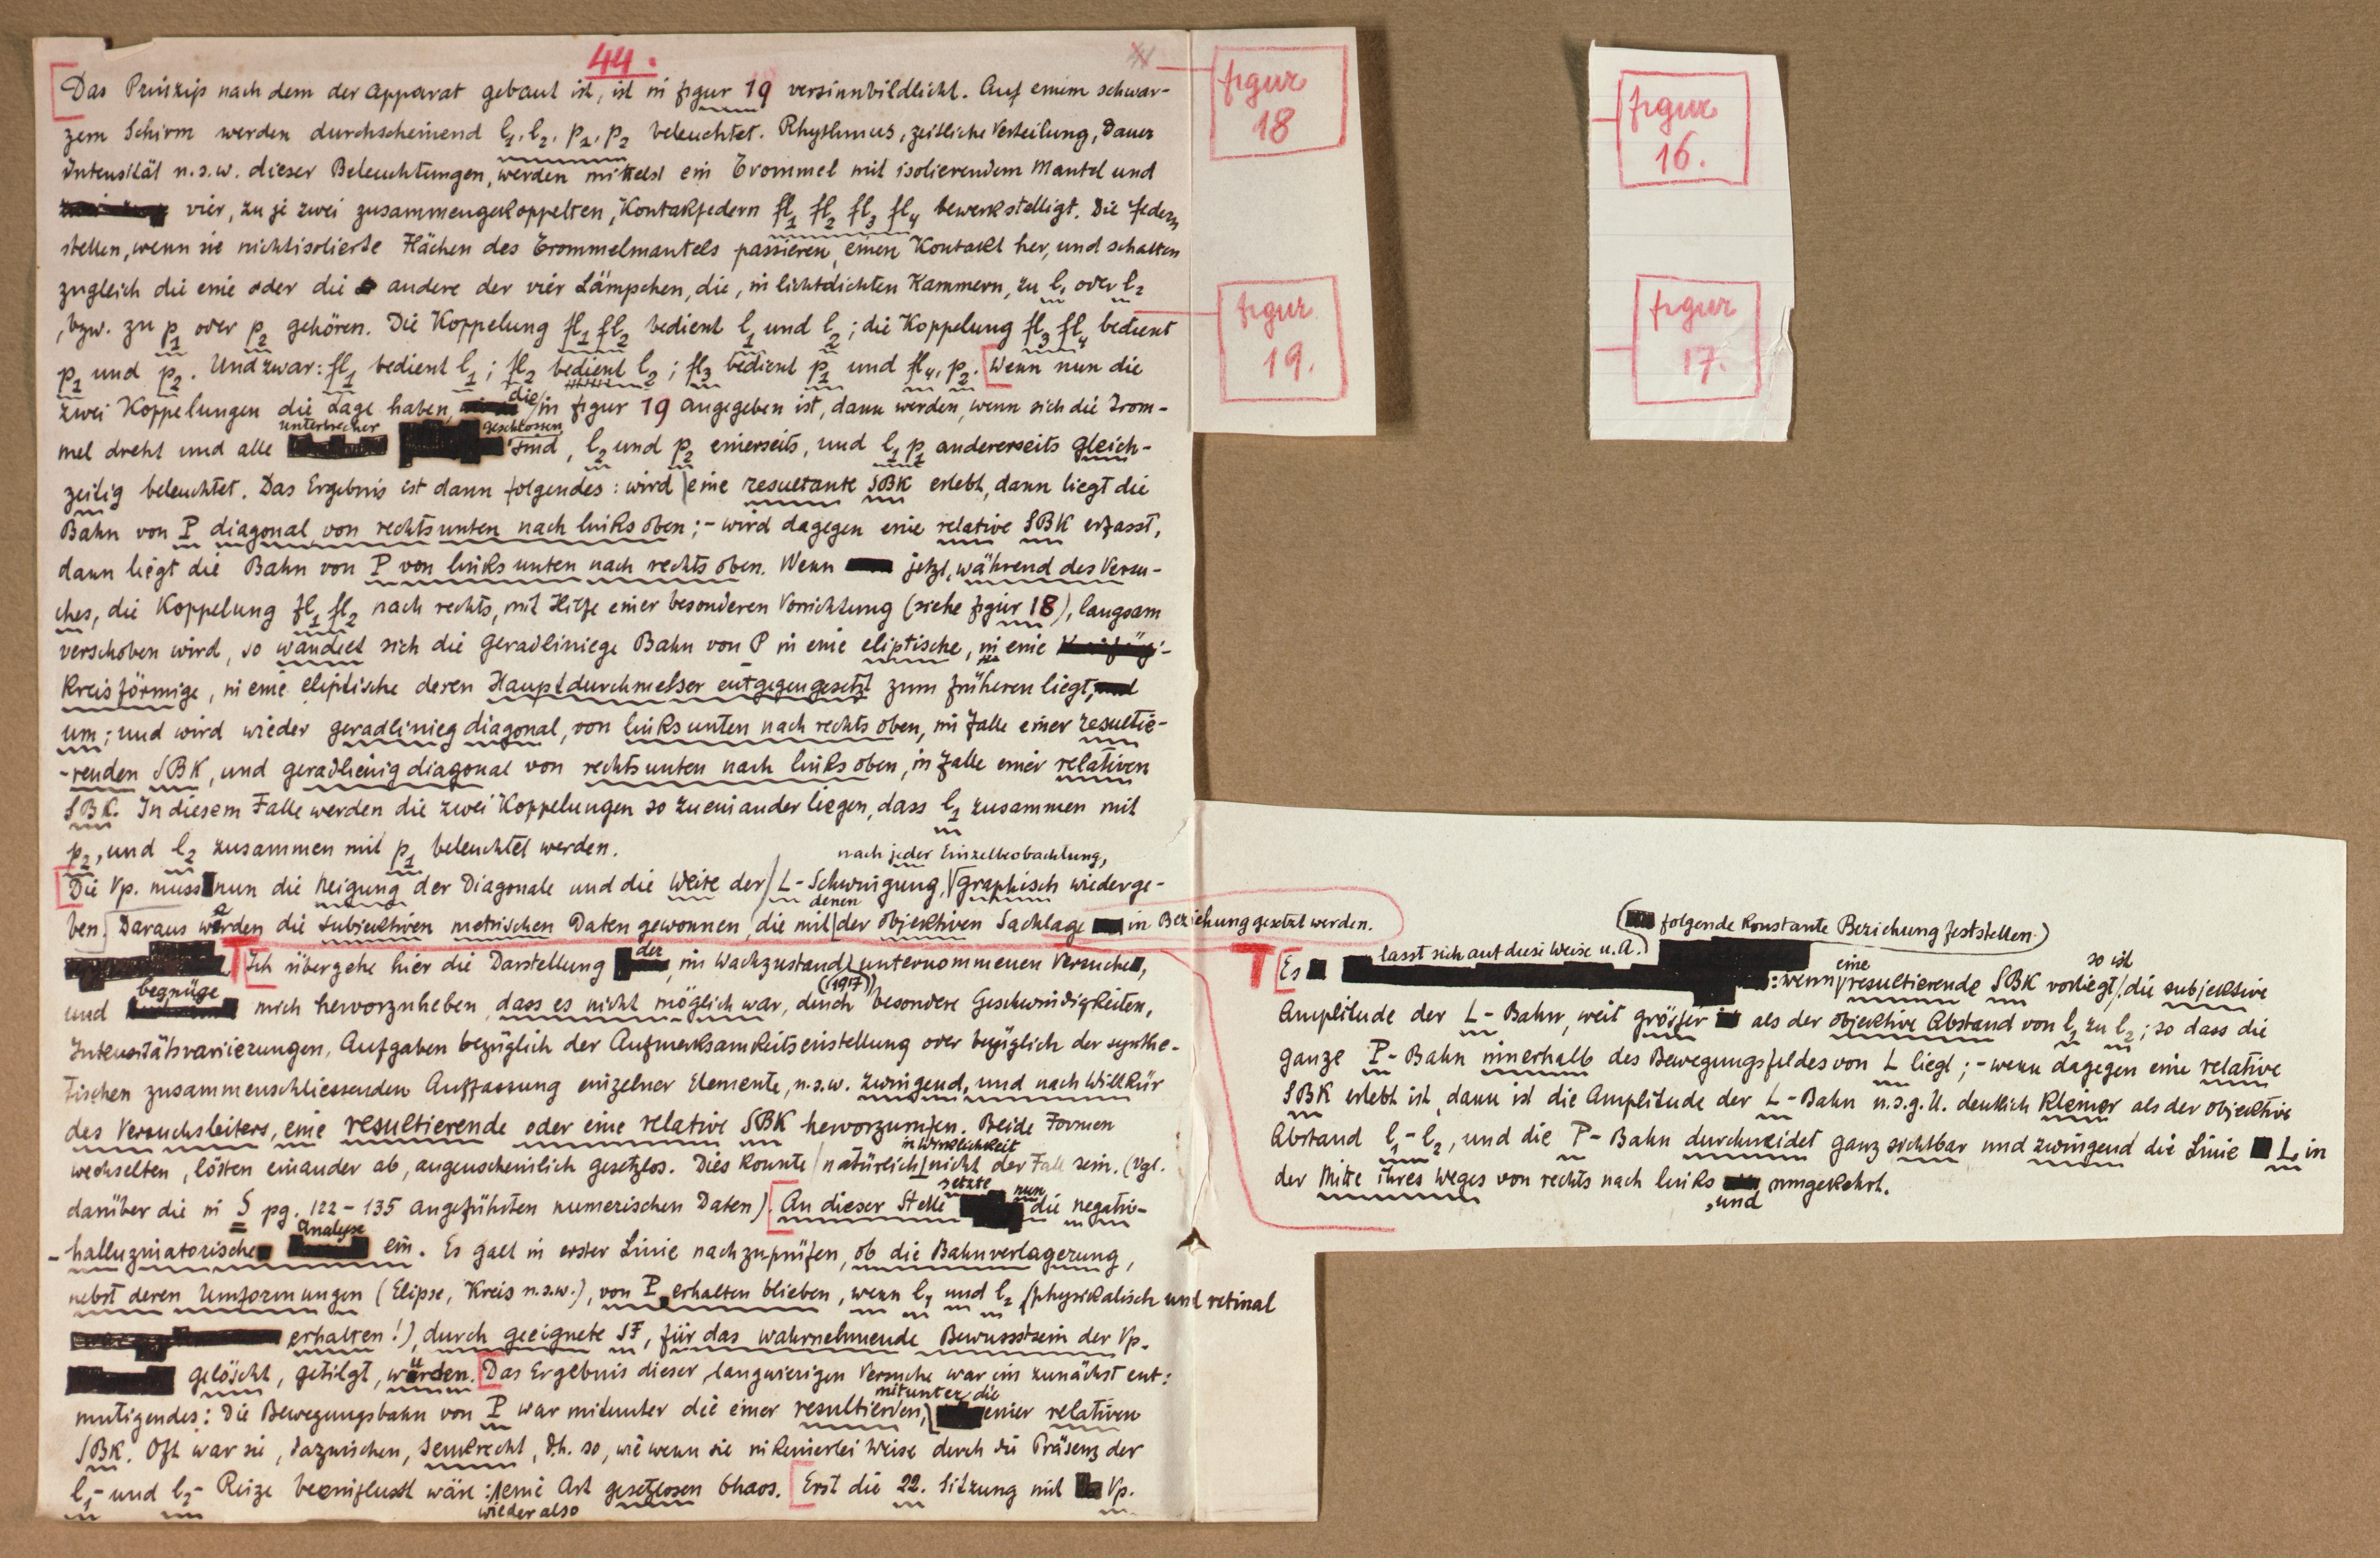 44.
Das Prinzip nach dem der Apparat gebaut ist, ist in figur 19 versinnbildlicht. Auf einem schwar-
zem Schirm werden durchscheinend l₁, l₂, p₁, p₂ beleuchtet. Rhythmus, zeitliche Verteilung, Dauer
Intensität u.s.w. dieser Beleuchtungen, werden mittelst ein Trommel mit isolierendem Mantel und
vier, zu je zwei zusammengekoppelten, Kontakfedern fl₁ fl₂ fl₃ fl₄ bewerkstelligt. Die Federn
stellen, wenn sie nichtisolierte Flächen des Trommelmantels passieren, einen Kontakt her, und schalten
zugleich die eine oder die andere der vier Lämpchen, die, in lichtdichten Kammern, zu l₁ oder l₂
, bzw. zu p₁ oder p₂ gehören. Die Koppelung fl₁ fl₂ bedient l₁ und l₂; die Koppelung fl₃ fl₄ bedient
p₁ und p₂. Und zwar: fl₁ bedient l₁; fl₂ bedient l₂; fl₃ bedient p₁ und fl₄, p₂. Wenn nun die
zwei Koppelungen die Lage haben, die in figur 19 angegeben ist, dann werden, wenn sich die Trom-
mel dreht und alle unterbrecher geschlossen sind, l₂ und p₂ einerseits, und l₁ p₁ andererseits gleich-
zeitig beleuchtet. Das Ergebnis ist dann folgendes: wird eine resultante SBK erlebt, dann liegt die
Bahn von P diagonal von rechts unten nach links oben; - wird dagegen eine relative SBK erfasst,
dann liegt die Bahn von P von links unten nach rechts oben. Wenn jetzt, während des Versu-
ches, die Koppelung fl₁ fl₂ nach rechts, mit Hilfe einer besonderen Vorrichtung (siehe figur 18), langsam
verschoben wird, so wandelt sich die geradliniege Bahn von P in eine eliptische, in eine
kreisförmige, in eine eliptische deren Hauptdurchmesser entgegengesetzt zum früheren liegt,
um; und wird wieder geradlinieg diagonal, von links unten nach rechts oben, im Falle einer resultie-
-renden SBK, und geradlienig diagonal von rechts unten nach links oben, in Falle einer relativen
SBK. In diesem Falle werden die zwei Koppelungen so zueinander liegen, dass l₁ zusammen mit
p₂, und l₂ zusammen mit p₁ beleuchtet werden.
Die Vp. muss nun die Neigung der Diagonale und die Weite der L-Schwingung, nach jeder Einzelbeobachtung, graphisch wiederge-
ben. Daraus werden die subjektiven metrischen Daten gewonnen, die mit denen der objektiven Sachlage in Beziehung gesetzt werden.
Ich übergehe hier die Darstellung der, im Wachzustand (1917) unternommenen Versuche,
und begnüge mich hervorzuheben, dass es nicht möglich war, durch besondere Geschwindigkeiten,
Intensitätsvariierungen, Aufgaben bezüglich der Aufmerksamkeitseinstellung oder bezüglich der synthe-
tischen zusammenschliessenden Auffassung einzelner Elemente, u.s.w. zwingend, und nach Willkür
des Versuchsleiters, eine resultierende oder eine relative SBK hervorzurufen. Beide Formen
wechselten, lösten einander ab, augenscheinlich gesetzlos. Dies konnte natürlich in Wirklichkeit nicht der Fall sein. (Vgl.
darüber die in S pg. 122-135 angeführten numerischen Daten). An dieser Stelle setzte nun die negativ-
-halluzniatorische Analyse ein. Es galt in erster Linie nachzuprüfen, ob die Bahnverlagerung,
nebst deren Umformungen (Elipse, Kreis u.s.w.), von P erhalten blieben, wenn l₁ und l₂ (physikalisch und retinal
erhalten!), durch geeignete SF, für das wahrnehmende Bewusstsein der Vp.
gelöscht, getilgt, würden. Das Ergebnis dieser, langwierigen Versuche war ein zunächst ent:
mutigendes: Die Bewegungsbahn von P war mitunter die einer resultierden, mitunter die einer relativen
SBK. Oft war sie, dazwischen, senkrecht, d.h. so, wie wenn sie in keinerlei Weise durch die Präsenz der
l₁- und l₂- Reize beeinflusst wäre: wieder also eine Art gesetzlosen Chaos. Erst die 22. Sitzung mit Vp.
figur
18
figur
19.
figur
16.
figur
17.
Es lässt sich auf diese Weise u.A. (folgende konstante Beziehung feststellen.)
: wenn eine resultierende SBK vorliegt, so ist die subjektive
Amplitude der L-Bahn, weit grösser als der objektive Abstand von l₁ zu l₂; so dass die
ganze P-Bahn innerhalb des Bewegungsfeldes von L liegt; - wenn dagegen eine relative
SBK erlebt ist, dann ist die Amplitude der L-Bahn u.s.g.U. deutlich kleiner als der objektive
Abstand l₁-l₂, und die P-Bahn durchneidet ganz sichtbar und zwingend die Linie L, in
der Mitte ihres Weges von rechts nach links, und umgekehrt.